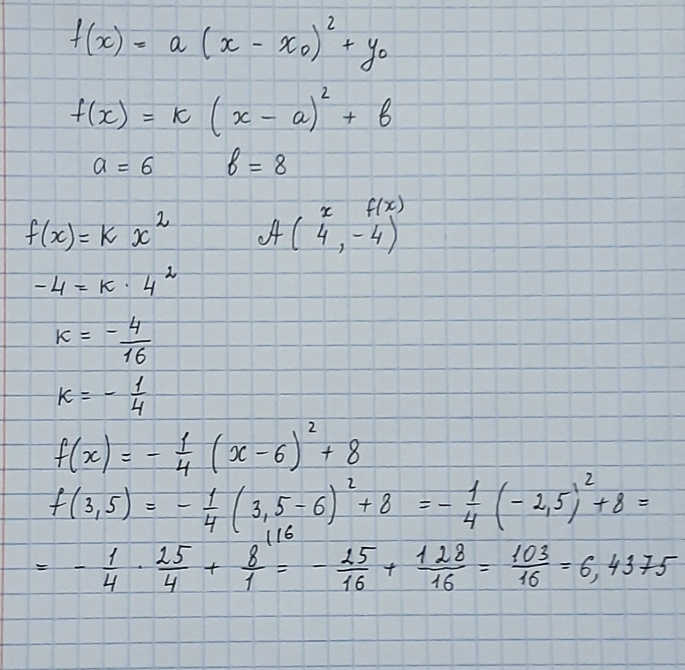 f(x) = a (x - x₀)² + y₀
f(x) = к (x - a)² + в
a = 6 в = 8
x f(x)
f(x) = к x² A(4, -4)
-4 = к · 4²
к = - 4/16
к = - 1/4
f(x) = - 1/4 (x - 6)² + 8
f(3,5) = - 1/4 (3,5 - 6)² + 8 = - 1/4 (-2,5)² + 8 =
= - 1/4 · 25/4 + 8/1 |16 = - 25/16 + 128/16 = 103/16 = 6,4375